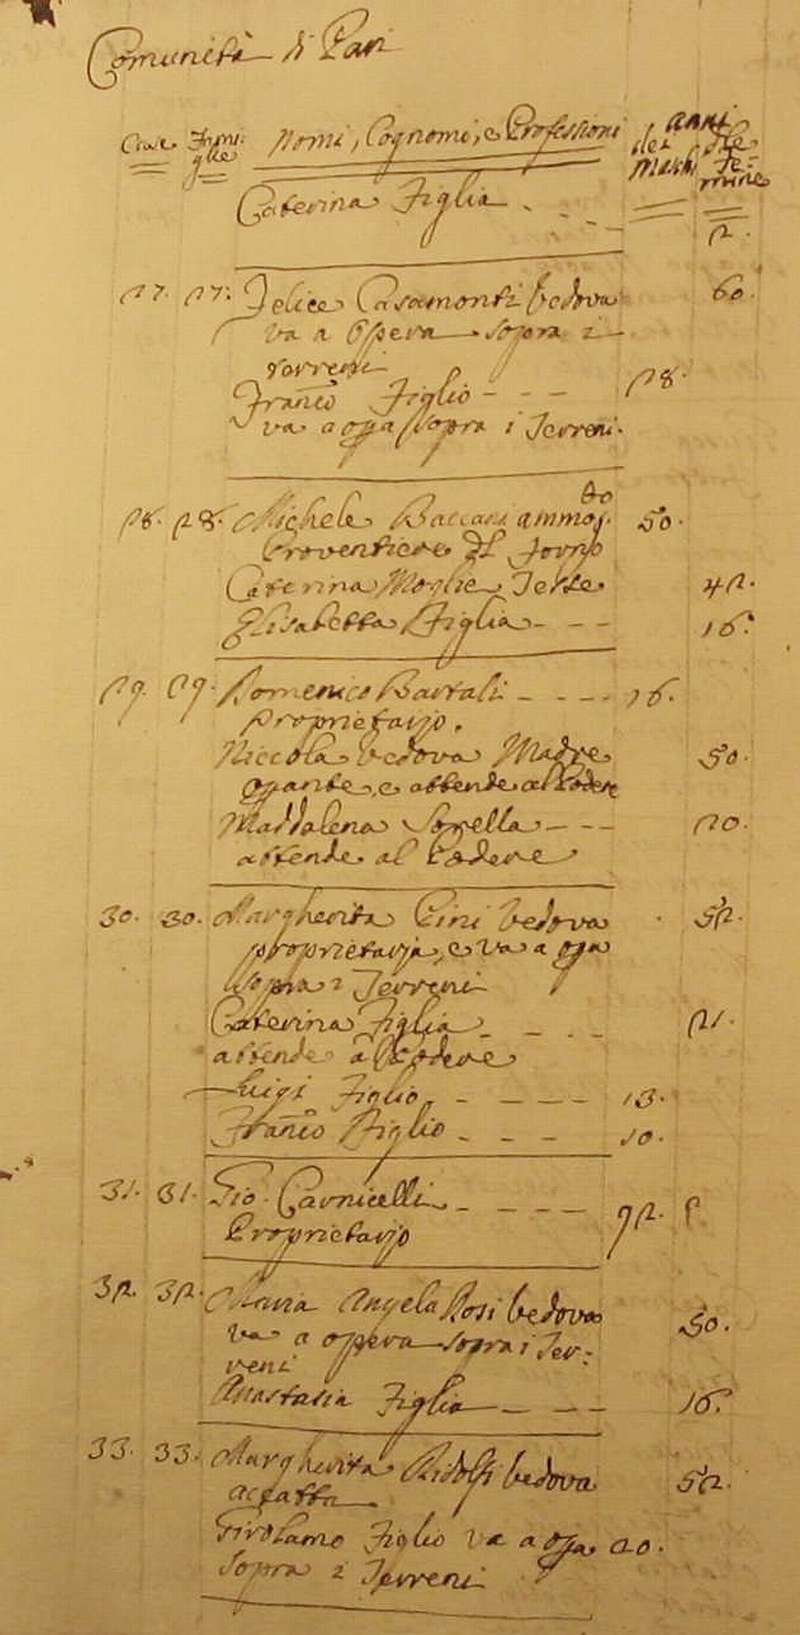 Comunità di Pari
Case Fami= Nomi, Cognomi, e Professioni anni
glie dei Maschi delle Fe=
mine
Caterina Figlia 2.
27. 27. Felice Casamonti vedova 60.
va a Opera sopra i
terreni
Franco Figlio 28.
va a opa sopra i Terreni.
28. 28. Michele Baccani ammogto 50.
Proventiere del Forno
Caterina Moglie Tesse 42.
Elisabetta Figlia 16.
29. 29. Domenico Bartali 16.
proprietarjo.
Niccola vedova Madre 50.
opante, e attende al Podere
Maddalena Sorella 20.
attende al Podere
30. 30. Margherita Pini vedova 52.
proprietarja, e va a opa
sopra i Terreni
Caterina Figlia 21.
attende al Podere
Luigi Figlio 13.
Franco Figlio 10.
31. 31. Gio. Carnicelli 92.
Proprietarjo
32. 32. Maria Angela Rosi vedova 50.
va a opera sopra i Ter=
reni
Anastasia Figlia 16.
33. 33. Margherita Ridolfi vedova 52.
accatta
Girolamo Figlio va a opa 20.
sopra i Terreni